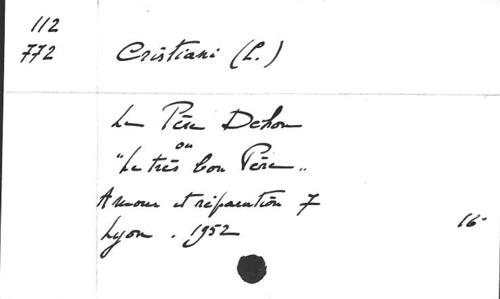 112
772 Cristiani (L.)
Le Père Dehon
ou
"Le très bon Père"
Amour et réparation 7
Lyon . 1952 16°